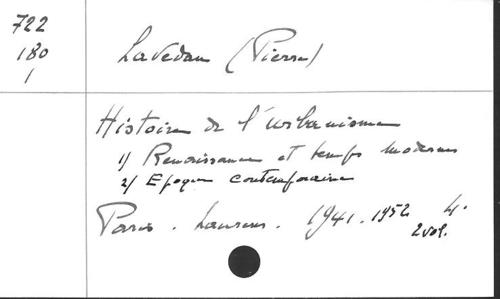 722
180
1
Lavedan (Pierre)
Histoire de l'urbanisme
1/ Renaissance et temps modernes
2/ Epoque contemporaine
Paris. Laurens. 1941.1952 4.
2 vol.